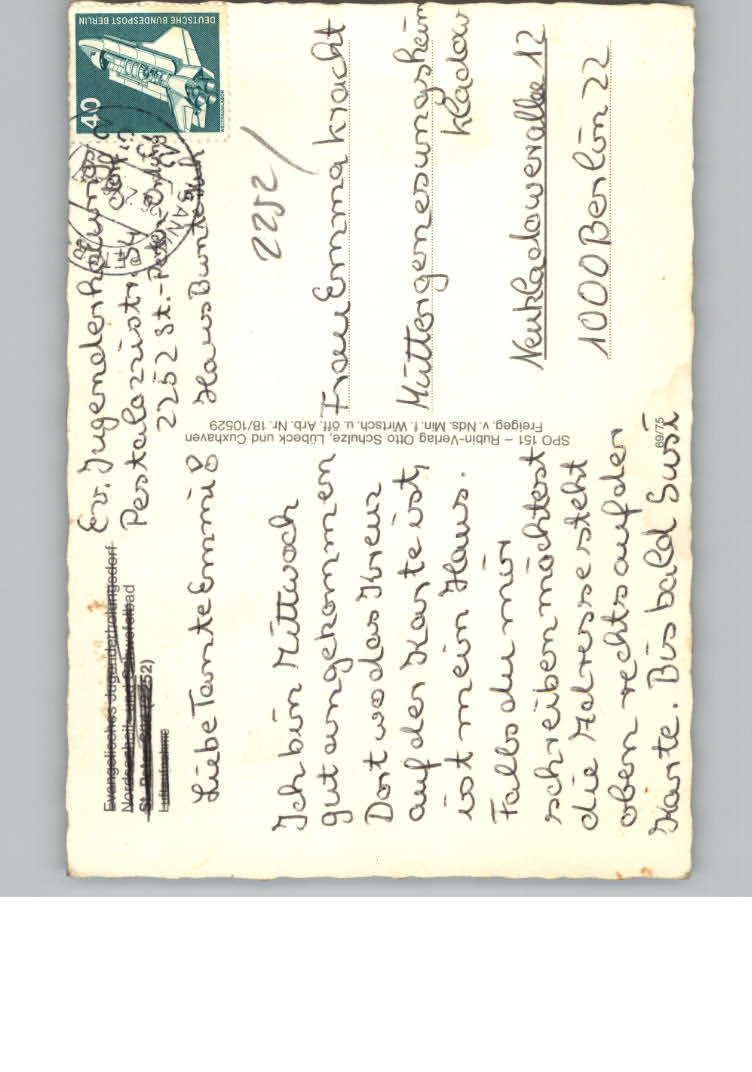 Evangelisches Jugenderholungsdorf
Nordseeheil- und Schwefelbad
St. Peter-Ording (2252)
Luftaufnahme
Ev. Jugenderholungs
dorf in
Pestalozzistr. 54
2252 St.-Peter-Ording
Haus Bunte
Liebe Tante Emmi!
Ich bin Mittwoch
gut angekommen
Dort wo das Kreuz
auf der Karte ist,
ist mein Haus.
Falls du mir
schreiben möchtest
die Adresse steht
oben rechts auf der
Karte. Bis bald Susi
69/75
SPO 151 – Rubin-Verlag Otto Schulze, Lübeck und Cuxhaven
Freigeg. v. Nds. Min. f. Wirtsch. u. öff. Arb. Nr. 18/10529
DEUTSCHE BUNDESPOST BERLIN
40
2252/
Frau Emma Kracht
Müttergenesungsheim
Kladow
Neukladowerallee 12
1000 Berlin 22